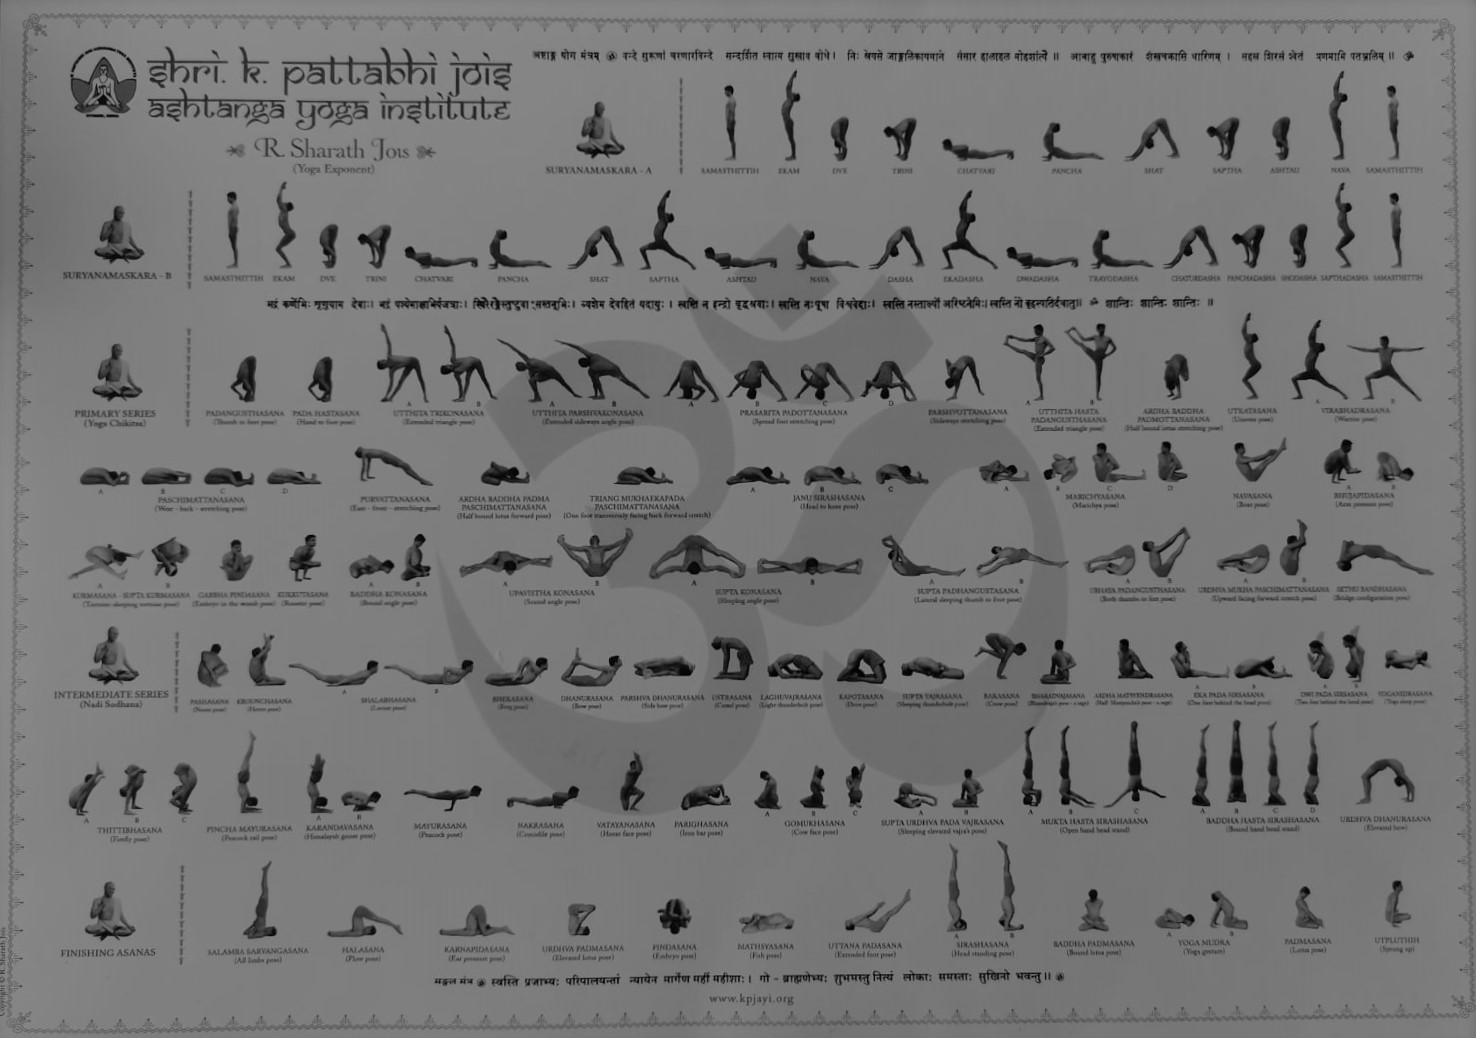 shri. k. pattabhi jois
ashtanga yoga institute
R. Sharath Jois
(Yoga Exponent)
SURYANAMASKARA - A
SAMASTHITTIH EKAM DVE TRINI CHATVARI PANCHA SHAT SAPTHA ASHTAU NAVA SAMASTHITTIH
SURYANAMASKARA - B
SAMASTHITTIH EKAM DVE TRINI CHATVARI PANCHA SHAT SAPTHA ASHTAU NAVA DASHA EKADASHA DWADASHA TRAYODASHA CHATURDASHA PANCHADASHA SHODASHA SAPTHADASHA SAMASTHITTIH
शान्तिः शान्तिः शान्तिः ॥
PRIMARY SERIES
(Yoga Chikitsa)
PADANGUSTHASANA
(Thumb to foot pose)
PADA HASTASANA
(Hand to foot pose)
A B
UTTHITA TRIKONASANA
(Extended triangle pose)
A B
UTTHITA PARSHVAKONASANA
(Extended sideways angle pose)
A B C D
PRASARITA PADOTTANASANA
(Spread foot stretching pose)
PARSHVOTTANASANA
(Sideways stretching pose)
A B
UTTHITA HASTA
PADANGUSTHASANA
(Extended triangle pose)
ARDHA BADDHA
PADMOTTANASANA
(Half bound lotus stretching pose)
UTKATASANA
(Uneven pose)
A B
VIRABHADRASANA
(Warrior pose)
A B C D
PASCHIMATTANASANA
(West - back - stretching pose)
PURVATTANASANA
(East - front - stretching pose)
ARDHA BADDHA PADMA
PASCHIMATTANASANA
(Half bound lotus forward pose)
TRIANG MUKHAEKAPADA
PASCHIMATTANASANA
(One foot transversely facing back forward stretch)
A B C
JANU SIRASHASANA
(Head to knee pose)
A B C D
MARICHYASANA
(Marichya pose)
NAVASANA
(Boat pose)
A B
BHUJAPIDASANA
(Arm pressure pose)
A B
KURMASANA - SUPTA KURMASANA
(Tortoise-sleeping tortoise pose)
GARBHA PINDASANA
(Embryo in the womb pose)
KUKKUTASANA
(Rooster pose)
A
BADDHA KONASANA
(Bound angle pose)
A B
UPAVISTHA KONASANA
(Seated angle pose)
A B
SUPTA KONASANA
(Sleeping angle pose)
A B
SUPTA PADHANGUSTASANA
(Lateral sleeping thumb to foot pose)
A B
UBHAYA PADANGUSTHASANA
(Both thumbs to foot pose)
A B
URDHVA MUKHA PASCHIMATTANASANA
(Upward facing forward stretch pose)
SETHU BANDHASANA
(Bridge configuration pose)
INTERMEDIATE SERIES
(Nadi Sodhana)
PASHASANA
(Noose pose)
KROUNCHASANA
(Heron pose)
A B
SHALABHASANA
(Locust pose)
BHEKASANA
(Frog pose)
DHANURASANA
(Bow pose)
PARSHVA DHANURASANA
(Side bow pose)
USTRASANA
(Camel pose)
LAGHUVAJRASANA
(Light thunderbolt pose)
KAPOTASANA
(Dove pose)
SUPTA VAJRASANA
(Sleeping thunderbolt pose)
BAKASANA
(Crow pose)
BHARADVAJASANA
ARDHA MATSYENDRASANA
A B
EKA PADA SIRSASANA
(One foot behind the head pose)
A B
DWI PADA SIRSASANA
(Two feet behind the head pose)
YOGANIDRASANA
(Yoga sleep pose)
A B C
THITTIBHASANA
(Firefly pose)
PINCHA MAYURASANA
(Peacock tail pose)
A B
KARANDAVASANA
(Himalayan goose pose)
MAYURASANA
(Peacock pose)
NAKRASANA
(Crocodile pose)
VATAYANASANA
(Horse face pose)
PARIGHASANA
(Iron bar pose)
A B C
GOMUKHASANA
(Cow face pose)
A B
SUPTA URDHVA PADA VAJRASANA
(Sleeping elevated vajra pose)
A B C
MUKTA HASTA SIRASHASANA
(Open hand head stand)
A B C D
BADDHA HASTA SIRASHASANA
(Bound hand head stand)
URDHVA DHANURASANA
(Elevated bow)
FINISHING ASANAS
SALAMBA SARVANGASANA
(All limbs pose)
HALASANA
(Plow pose)
KARNAPIDASANA
(Ear pressure pose)
URDHVA PADMASANA
(Elevated lotus pose)
PINDASANA
(Embryo pose)
MATHSYASANA
(Fish pose)
UTTANA PADASANA
(Extended foot pose)
A B
SIRASHASANA
(Head standing pose)
BADDHA PADMASANA
(Bound lotus pose)
A B
YOGA MUDRA
(Yoga gesture)
PADMASANA
(Lotus pose)
UTPLUTHIH
(Sprung up)
स्वस्ति प्रजाभ्यः परिपालयन्तां न्यायेन मार्गेण महीं महीशाः। गो - ब्राह्मणेभ्यः शुभमस्तु नित्यं लोकाः समस्ताः सुखिनो भवन्तु॥
www.kpjayi.org
Copyright © R. Sharath Jois